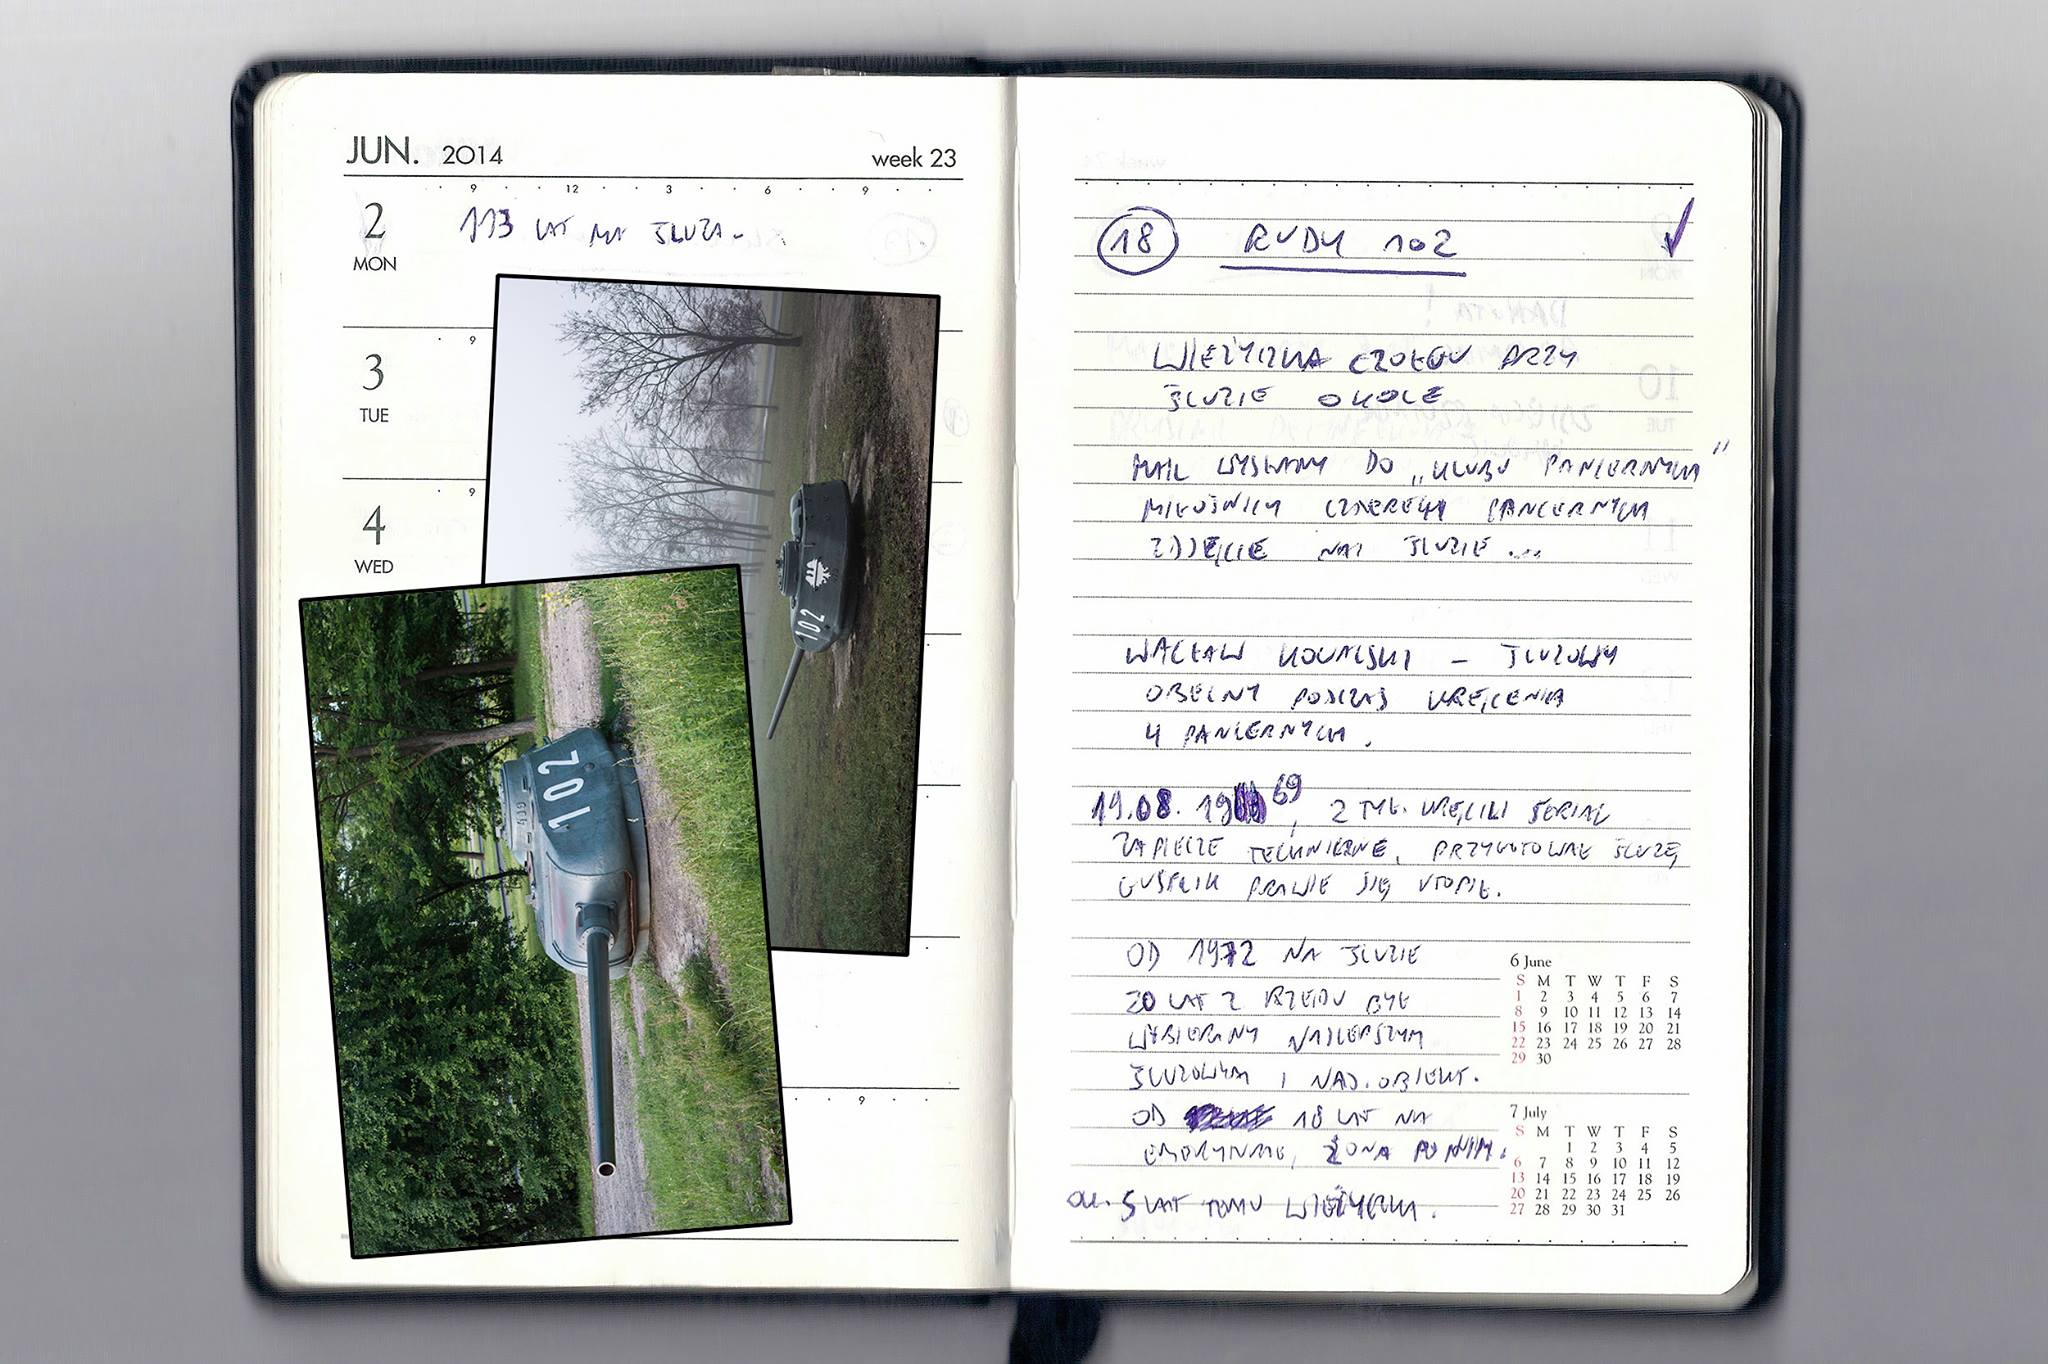 JUN. 2014 week 23
9 12 3 6 9
2
MON
113 LAT MA ŚLUZA.
9
3
TUE
9
4
WED
102
102
9
18 RUDY 102
WIEŻYCZKA CZOŁGU PRZY
ŚLUZIE OKOLE
MAIL WYSŁANY DO „KLUBU PANCERNYCH"
MIŁOŚNICY CZTERECH PANCERNYCH
ZDJĘCIE NA ŚLUZIE ...
WACŁAW KOWALSKI – ŚLUZOWY
OBECNY PODCZAS KRĘCENIA
4 PANCERNYCH.
19.08.1969, 2 TYG. KRĘCILI SERIAL
ZAPLECZE TECHNICZNE, PRZYGOTOWAŁ ŚLUZĘ,
GUSTLIK PRAWIE SIĘ UTOPIŁ.
OD 1972 NA ŚLUZIE
20 LAT Z RZĘDU BYŁ
WYBIERANY NAJLEPSZYM
ŚLUZOWYM I NAJ. OBIEKT.
OD 18 LAT NA
EMERYTURZE, ŻONA PO NIM.
OK. 5 LAT TEMU WIEŻYCZKA.
6 June
S M T W T F S
1 2 3 4 5 6 7
8 9 10 11 12 13 14
15 16 17 18 19 20 21
22 23 24 25 26 27 28
29 30
7 July
S M T W T F S
1 2 3 4 5
6 7 8 9 10 11 12
13 14 15 16 17 18 19
20 21 22 23 24 25 26
27 28 29 30 31